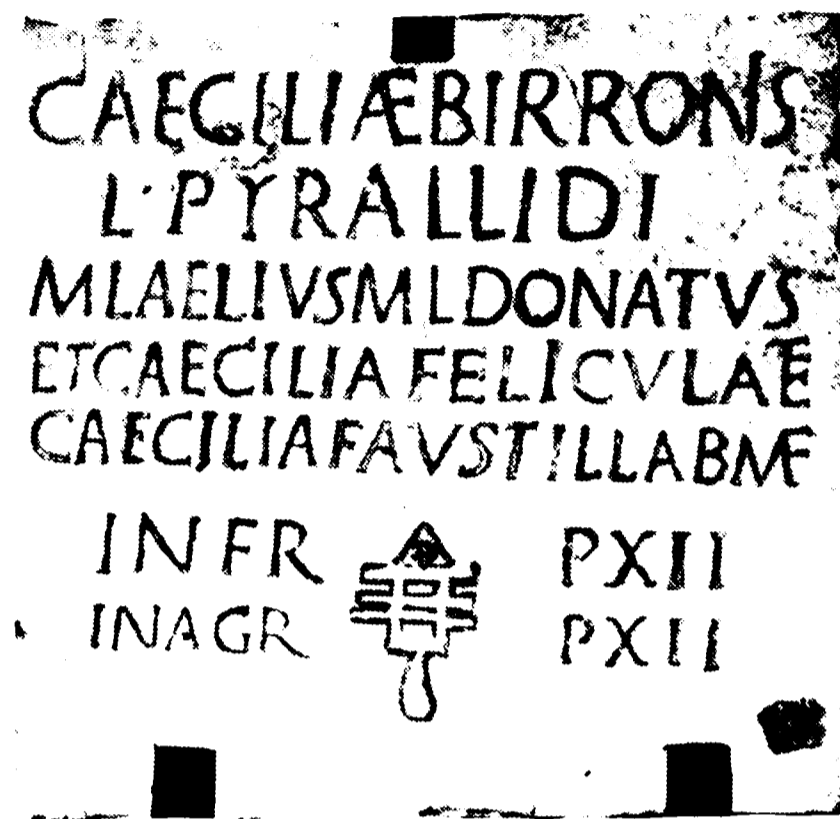 CAECILIÆBIRRONS
L·PYRALLIDI
MLAELIVSMLDONATVS
ETCAECILIAFELICVLAE
CAECILIAFAVSTILLABMF
INFR PXII
INAGR PXII